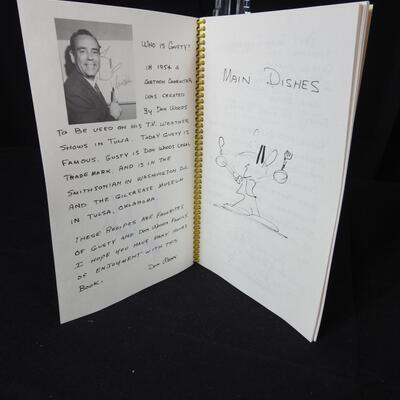 WHO IS GUSTY?
IN 1954 A
CARTOON CHARACTER
WAS CREATED
BY DON WOODS
TO BE USED ON HIS T.V. WEATHER
SHOWS IN TULSA. TODAY GUSTY IS
FAMOUS. GUSTY IS DON WOODS LEGAL
TRADE MARK. AND IS IN THE
SMITHSONIAN IN WASHINGTON D.C.
AND THE GILCREASE MUSEUM
IN TULSA, OKLAHOMA.
THESE RECIPES ARE FAVORITES
OF GUSTY AND DON WOODS FAMILY.
I HOPE YOU HAVE MANY HOURS
OF ENJOYMENT WITH THIS
BOOK.
DON WOODS
MAIN DISHES